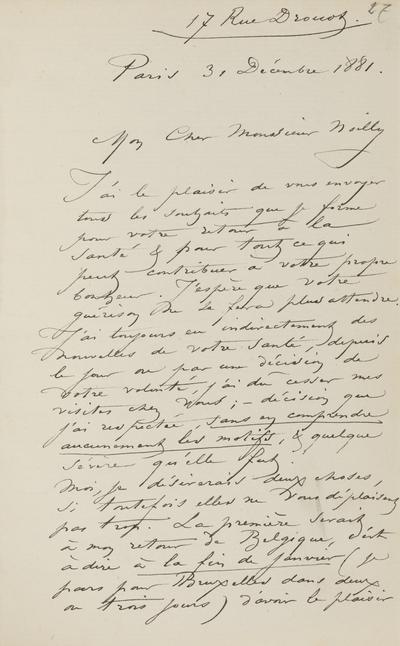 27
17 Rue Drouot.
Paris 31 Décembre 1881.
Mon Cher Monsieur Noilly
J'ai le plaisir de vous envoyer
tous les souhaits que je forme
pour votre retour à la
santé & pour tout ce qui
peut contribuer à votre propre
bonheur. J'espère que votre
guérison ne se fera plus attendre.
J'ai toujours eu indirectement des
nouvelles de votre santé, depuis
le jour où par une décision de
votre volonté, j'ai dû cesser mes
visites chez vous; – décision que
j'ai respectée, sans en comprendre
aucunement les motifs, & quelque
sévère qu'elle fut.
Moi, je désirerais deux choses,
si toutefois elles ne vous déplaisent
pas trop. La première serait
à mon retour de Belgique, c'est
à dire à la fin de janvier (je
pars pour Bruxelles dans deux
ou trois jours) d'avoir le plaisir